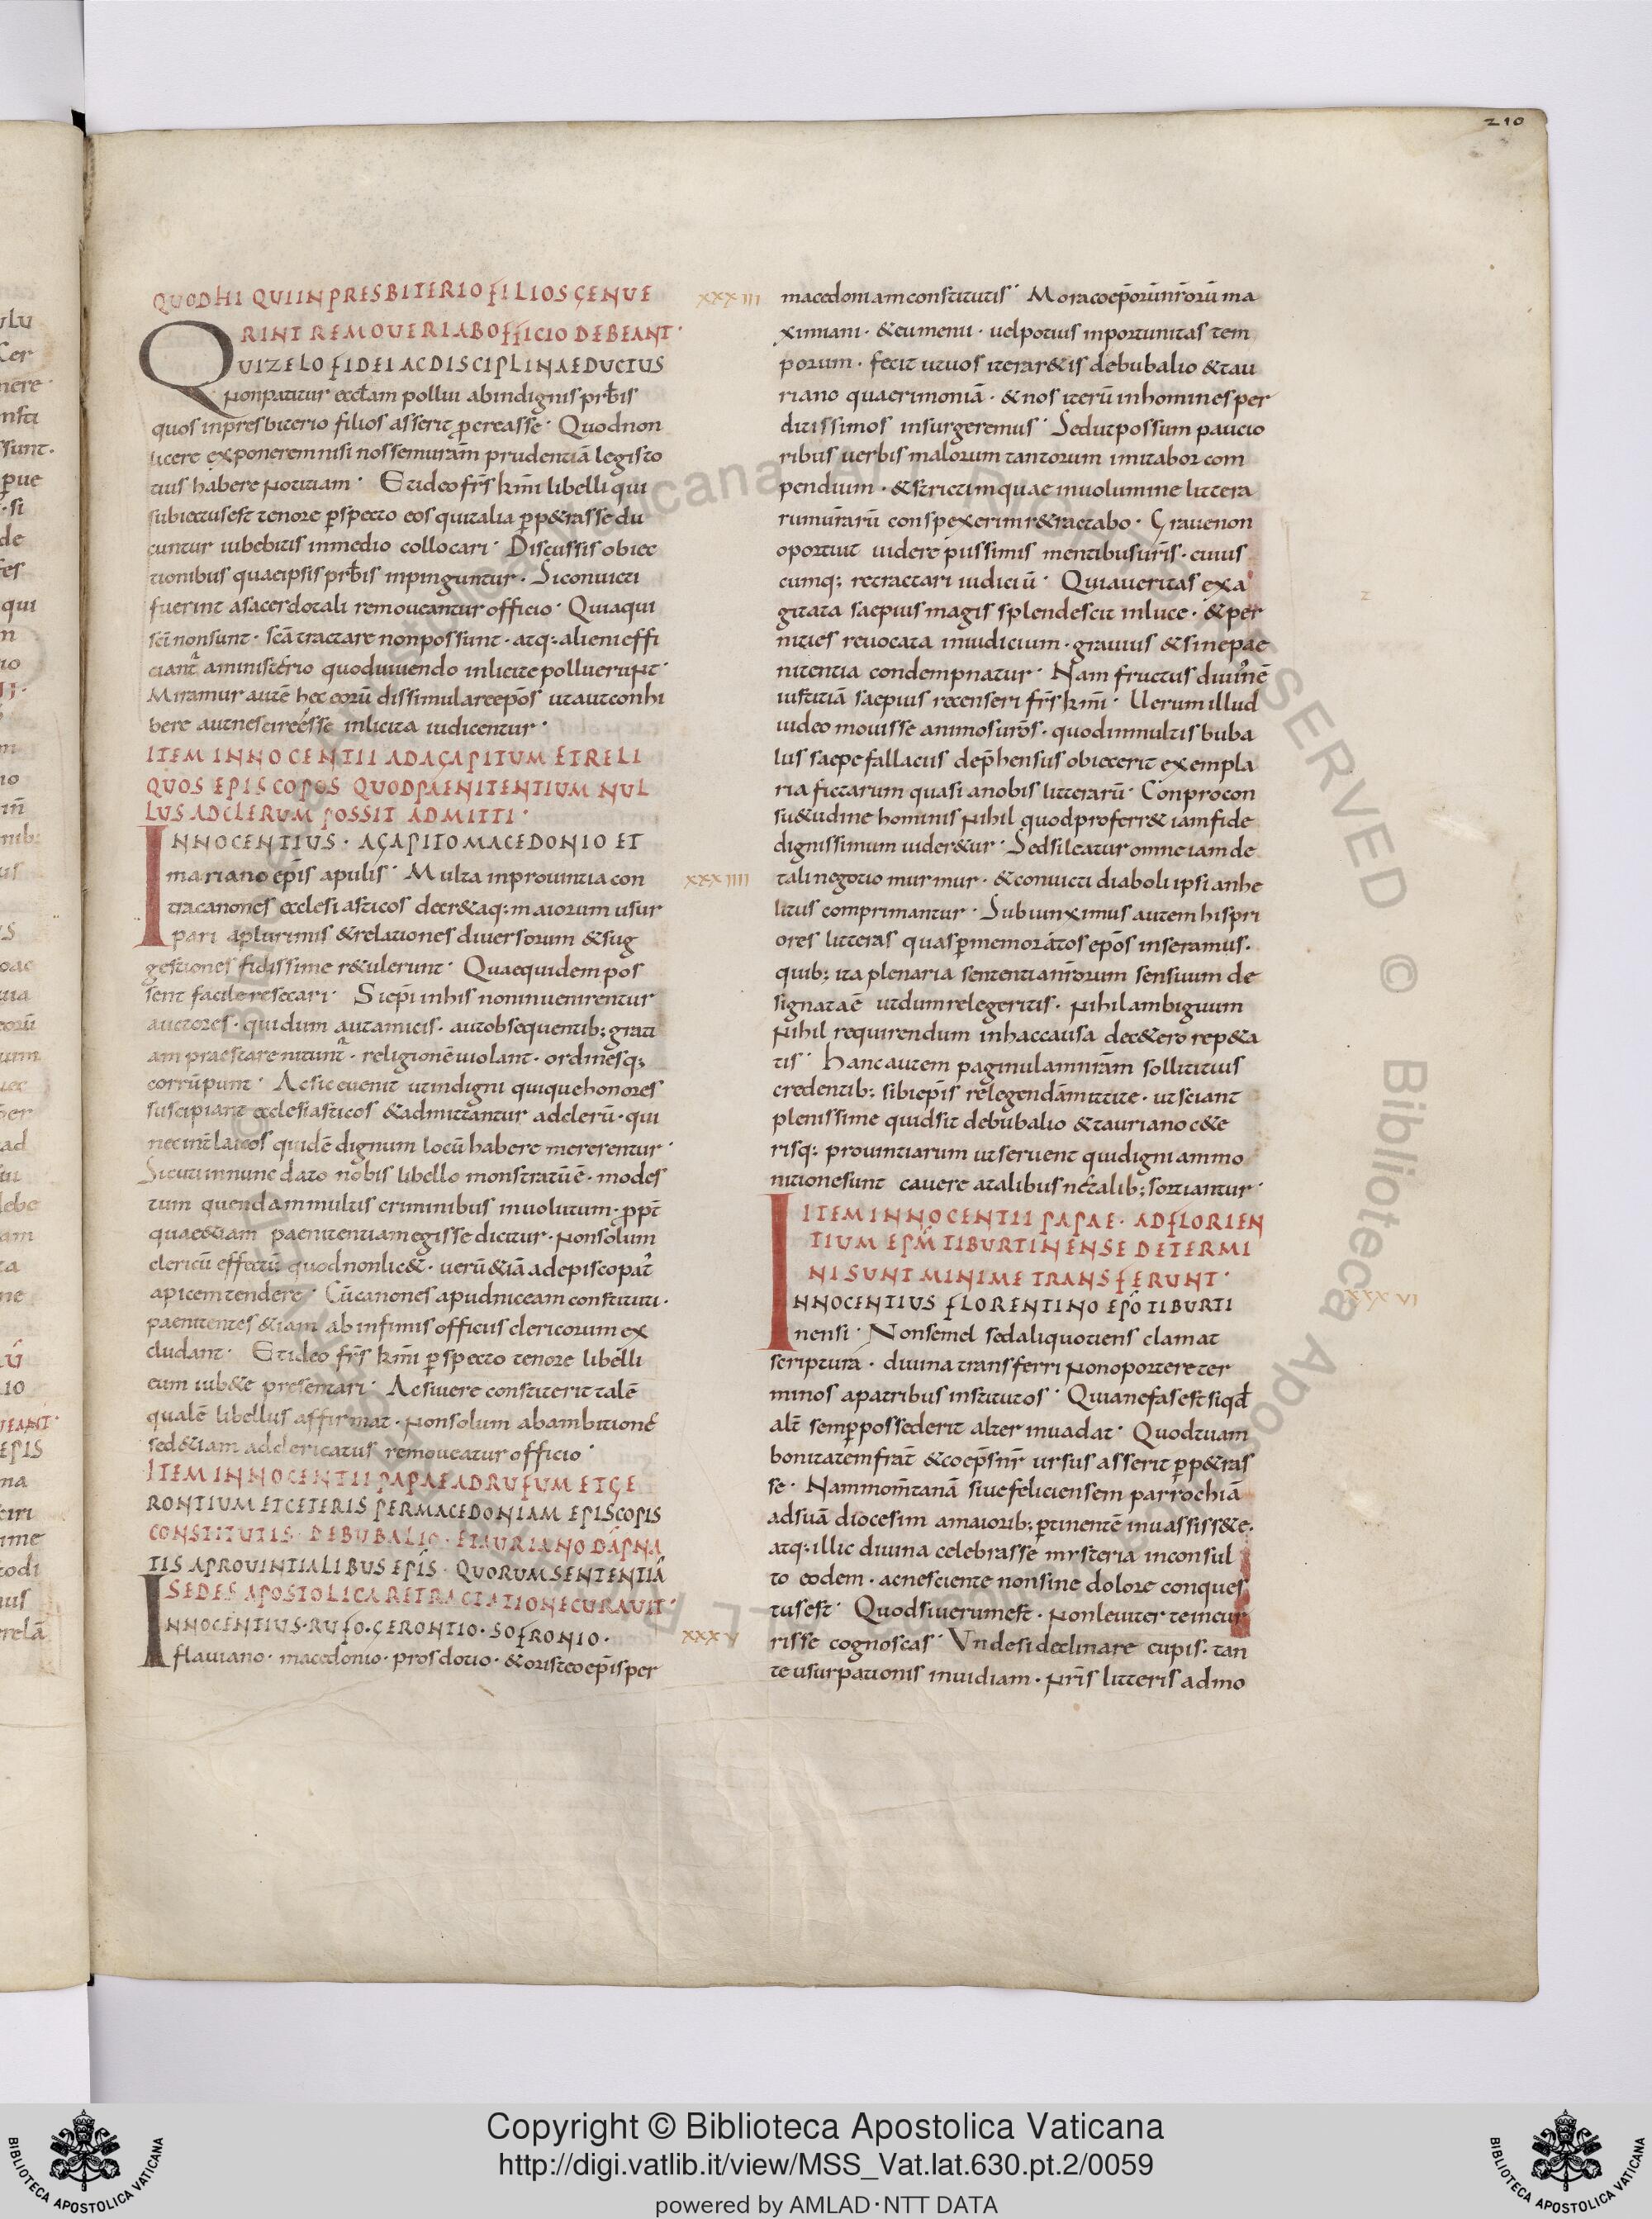 210
QUOD HI QUI IN PRESBITERIO FILIOS GENUE
RINT REMOUERI AB OFFICIO DEBEANT·
QUI ZELO FIDEI AC DISCIPLINAE DUCTUS
non patitur eccłam pollui ab indignis prb̄is
quos in presbiterio filios asserit ꝑcreasse· Quod non
licere exponerem nisi nossem uram̄ prudentiā legis to
tius habere notitiam· Et ideo fr̄s km̄i libelli qui
subiectus est tenore ꝑspecto eos qui talia ꝑp&rasse du
cuntur iubebitis in medio collocari· Discussis obiec
tionibus quae ipsis prb̄is inpinguntur· Si conuicti
fuerint a sacerdotali remoueantur officio· Quia qui
sc̄i non sunt· sc̄a tractare non possunt· atq: alieni effi
ciant' a ministerio quod uiuendo inlicite polluerunt·
Miramur autē hec eorū dissimulare ep̄os ut aut conhi
bere aut nescire esse inlicita iudicentur·
ITEM INNOCENTII AD AGAPITUM ET RELI
QUOS EPISCOPOS QUOD PAENITENTIUM NUL
LUS AD CLERUM POSSIT ADMITTI·
INNOCENTIUS· AGAPITO MACEDONIO ET
mariano ep̄is apulis· Multa in prouintia con
tra canones ecclesiasticos decr&aq: maiorum usur
pari a plurimis & relationes diuersorum & sug
gestiones fidissime r&ulerunt· Quae quidem pos
sent facile resecari· Si ep̄i in his non inuenirentur
auctores· qui dum aut amicis· aut obsequentib: grati
am praestare nitunt'· religionē uiolant· ordinesq:
corrūpunt· Ac sic euenit ut indigni quique honores
suscipiant ecclesiasticos & admittantur ad clerū· qui
nec int̄ laicos quidē dignum locū habere mererentur·
Sicut in nunc dato nobis libello monstratū ē· modes
tum quendam multis criminibus inuolutum· ꝓpt̄
quae &iam paenitentiam egisse dicitur· non solum
clericū effectū quod non lic&· uerū &iā ad episcopat'
apicem tendere· Cū canones apud niceam constituti·
paenitentes &iam ab infimis officiis clericorum ex
cludant· Et ideo fr̄s km̄i ꝑspecto tenore libelli
eum iub&e presentari· Ac si uere constiterit talē
qualē libellus affirmat· non solum ab ambitionē
sed &iam a clericatus remoueatur officio·
ITEM INNOCENTII PAPAE AD RUFUM ET GE
RONTIUM ET CETERIS PER MACEDONIAM EPISCOPIS
CONSTITUTIS· DE BUBALIO· ET AURIANO DĀPNA
TIS A PROUINTIALIBUS EPIS̄· QUORUM SENTENTIĀ
SEDES APOSTOLICA RETRACTATIONE CURAUIT·
INNOCENTIUS· RUFO· GERONTIO· SOFRONIO·
flauiano· macedonio· prosdotio· & oristeo ep̄is per
XXXIII
XXXIIII
XXXV
macedoniam constitutis· Mora coep̄orū nr̄orū ma
ximiani· & eumenii· uel potius inportunitas tem
porum· fecit ut uos iterar&is de bubalio & tau
riano quaerimoniā· & nos iterū in homines per
ditissimos insurgeremus· Sed ut possum paucio
ribus uerbis malorum tantorum imitabor com
pendium· & strictim quae in uolumine littera
rum ur̄arū conspexerim r&ractabo· Graue non
oportuit uidere piissimis mentibus uris̄· cuius
cumq: retractari iudiciū· Quia ueritas exa
gitata saepius magis splendescit in luce· & per
nities reuocata in iudicium· grauius & sine pae
nitentia condempnatur· Nam fructus diuin' ē
iustitiā saepius recenseri fr̄s km̄i· Uerum illud
uideo mouisse animos uros̄· quod in multis buba
lus saepe fallacus dep̄hensus obiecerit exempla
ria fictarum quasi a nobis litterarū· Con pro con
su&udine hominis nihil quod proferr& iam fide
dignissimum uider&ur· Sed sileatur omne iam de
tali negotio murmur· & conuicti diaboli ipsi anhe
litus comprimantur· Subiunximus autem his pri
ores litteras quas ꝑ memoratos ep̄os inseramus·
quib: ita plenaria sententia nr̄orum sensuum de
signata ē ut dum relegeritis· nihil ambiguum
nihil requirendum in hac causa de c&ero rep&a
tis· Hanc autem paginulam nram̄ sollititius
credentib: sibi ep̄is relegendā mittite· ut sciant
plenissime quid sit de bubalio & tauriano c&e
risq: prouintiarum ut seruent qui digni ammo
nitione sunt cauere a talibus ne talib: sortiantur·
ITEM INNOCENTII PAPAE· AD FLORIEN
TIUM EPM̄ TIBURTINENSE DE TERMI
NI SUNT MINIME TRANSFERUNT·
INNOCENTIUS FLORENTINO EPŌ TIBURTI
nensi· Non semel sed aliquotiens clamat
scriptura· diuina transferri non oportere ter
minos a patribus institutos· Quia nefas est si qd̄
alt̄ semꝑ possederit alter inuadat· Quod tuam
bonitatem frat̄ & coep̄s nr̄ ursus asserit ꝑp&ras
se· Nam mom̄tanā siue feliciensem parrochiā
ad suā diocesim a maiorib: ꝑtinentē inuassiss&e·
atq: illic diuina celebrasse mysteria inconsul
to eodem· ac nesciente non sine dolore conques
tus est· Quod si uerum est· non leuiter te incur
risse cognoscas· Unde si declinare cupis· tan
te usurpationis inuidiam· nr̄is litteris admo
XXXVI
Copyright © Biblioteca Apostolica Vaticana
http://digi.vatlib.it/view/MSS_Vat.lat.630.pt.2/0059
powered by AMLAD·NTT DATA
BIBLIOTECA APOSTOLICA VATICANA
BIBLIOTECA APOSTOLICA VATICANA